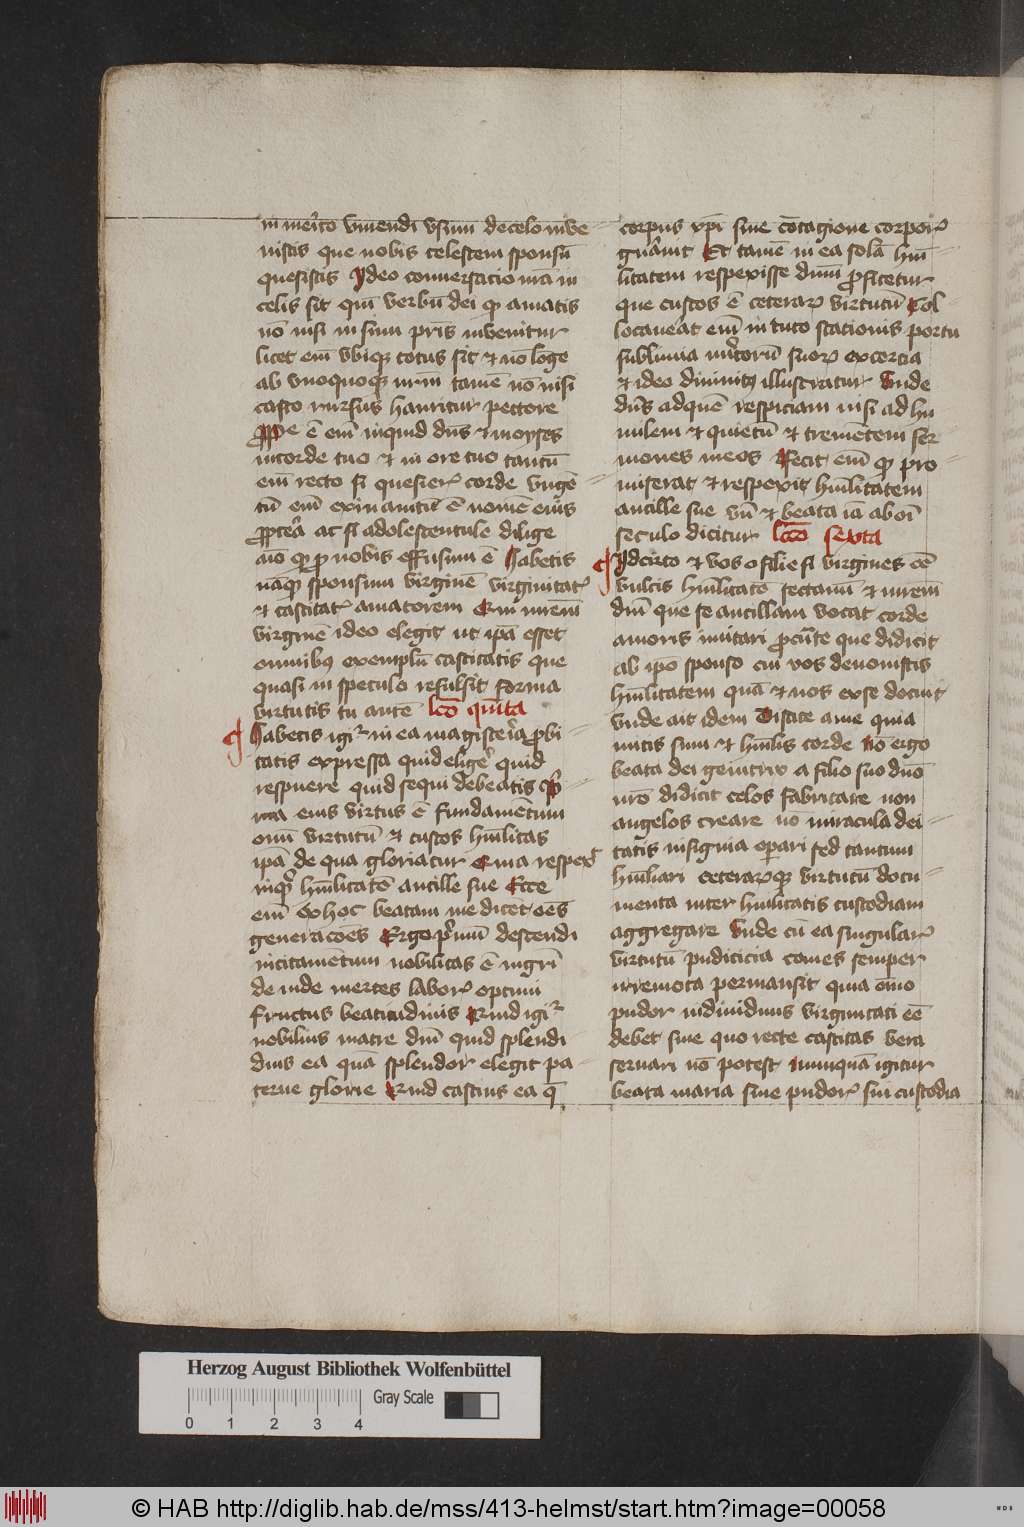 in merito viuendi vsum de celo inve
nistis que nobis celestem sponsū
quesistis Ideo conuersacio nr̄a in
celis sit qm̄ verbū dei qd̓ amatis
nō nisi in sinu pr̄is inuenitur
licet em̄ vbiqꝫ totus sit et nō loge
ab vnoquoqꝫ nrm̄ tamē nō nisi
casto rursus hauritur pectore
ꝓpe ē em̄ inquid dn̄s et moyses
in corde tuo et in ore tuo tantū
em̄ recto si quesierꝭ corde vngē
tū em̄ exinanitū ē nomē eiꝰs
ꝓpterea ac si adolescentule dilige
aīo qd̓ ꝓ nobis effusum ē Habetis
nāqꝫ sponsum virginē virginitatꝭ
et castitatꝭ amatorem Qui mrēm
virginē ideo elegit ut ip̄a esset
omnibꝰ exemplū castitatis que
quasi in speculo refulsit forma
virtutis tu autē lc̄o qu̓ita
Habetis igiꝛ in ea magisteria ꝓbi
tatis expressa quid eligere quid
respuere quid sequi debeatis Pri
ma eius virtus ē fundamētum
oīm virtutū et custos hūilitas
ip̄a de qua gloriatur Quia respex̄
inquit hūilitatē ancille sue Ecce
em̄ ex hoc beatam me dicēt oēs
generacōes Ergo p̓mū descendi
incitamētum nobilitas ē mgr̄i
de inde mertes laborꝭ optimi
fructus beatitudinis Quid igiꝛ
nobilius matre dn̄i quid splendi
dius ea quā splendor elegit pa
terne glorie Quid castius ea q̄
corpus xp̄i sine cōtagione corporꝭ
gn̄auit Et tamē in ea solā hūi
litatem respexisse dnm̄ ꝓfitetur
que custos ē ceterarꝝ virtutū Col
locauerat em̄ in tuto stationis portu
sublimia meritorū suorꝝ exercia
et ideo diuinitꝰ illustratur Vnde
dn̄s ad quē respiciam nisi ad hu
milem et quietū et tremētem ser
mones meos Fecit em̄ qd̓ pro
miserat et respexit hūilitatem
ancille sue vn̄ et beata iā ab oī
seculo dicitur lc̄o sexta
Idcirco et vos o filie si virgines eē
vultis hūilitatē sectamī et mrēm
dn̄i que se ancillam vocat corde
amoris imitari ꝓcurate que didicit
ab ip̄o sponso cui vos deuouistis
hūilitatem quā et nos ex se docuit
vnde ait idem Discite a me quia
mitis sum et hūilis corde Nō ergo
beata dei genitrix a filio suo dn̄o
nr̄o didicit celos fabricare non
angelos creare nō miracula dei
tatis insignia oꝑari sed tantum
hūiliari ceterarꝝqꝫ virtutū docu
menta inter hūilitatis custodiam
aggregare Vnde cū ea singularꝭ
virtutū pudicicia comes semper
irremota permansit quia om̄o
pudor indiuiduus virginitati eē
debet sine quo recte castitas vera
seruari nō potest Nunquā igitur
beata maria sine pudorꝭ sui custodia
Herzog August Bibliothek Wolfenbüttel
0 1 2 3 4 Gray Scale
© HAB http://diglib.hab.de/mss/413-helmst/start.htm?image=00058
WDB